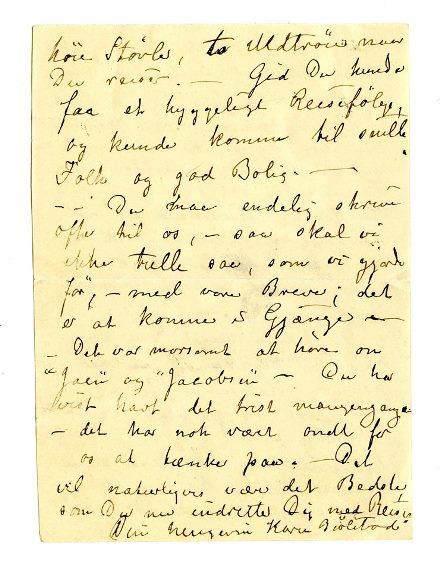 høie Støvler, to Uldtrøier naar
Du reiser. — Gid Du kunde
faa et hyggeligt Reisefølge,
og kunde komme til snille
Folk og god Bolig. —
— Du maa endelig skrive
ofte til os, — saa skal vi
ikke tulle saa, som vi gjorde
før, — med vore Breve; det
er at komme i Gjænge —
— Det var morsomt at høre om
"Jaen" og "Jacobsen" — Du har
vist havt det trist mangengang
— det har nok været ondt for
os at tænke paa. — Det
vil naturligvis være det Bedste,
som Du nu indretter Dig med Reisen
Din hengivne Karen